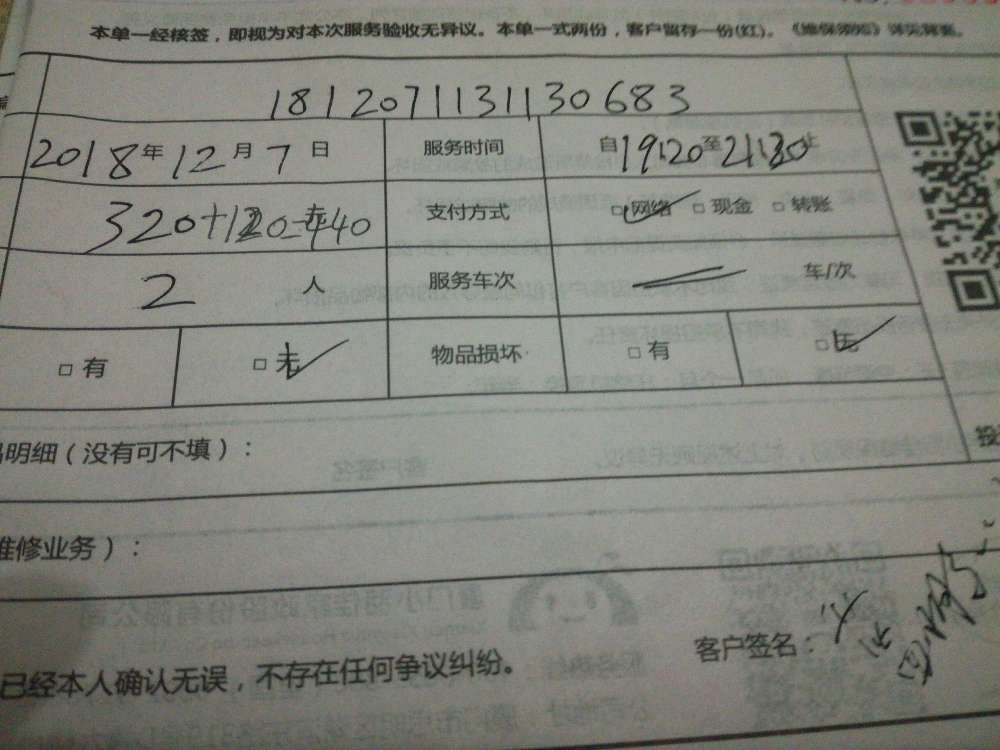 本单一经核签，即视为对本次服务验收无异议。本单一式两份，客户留存一份(红)。《维保须知》详见背面。
1812071131130683
2018年12月7日 服务时间 自19:20至21:30止
320+120=440 支付方式 □网络 □现金 □转账
2人 服务车次 车/次
□有 □无 物品损坏 □有 □无
明细（没有可不填）：
维修业务）：
客户签名：
已经本人确认无误，不存在任何争议纠纷。